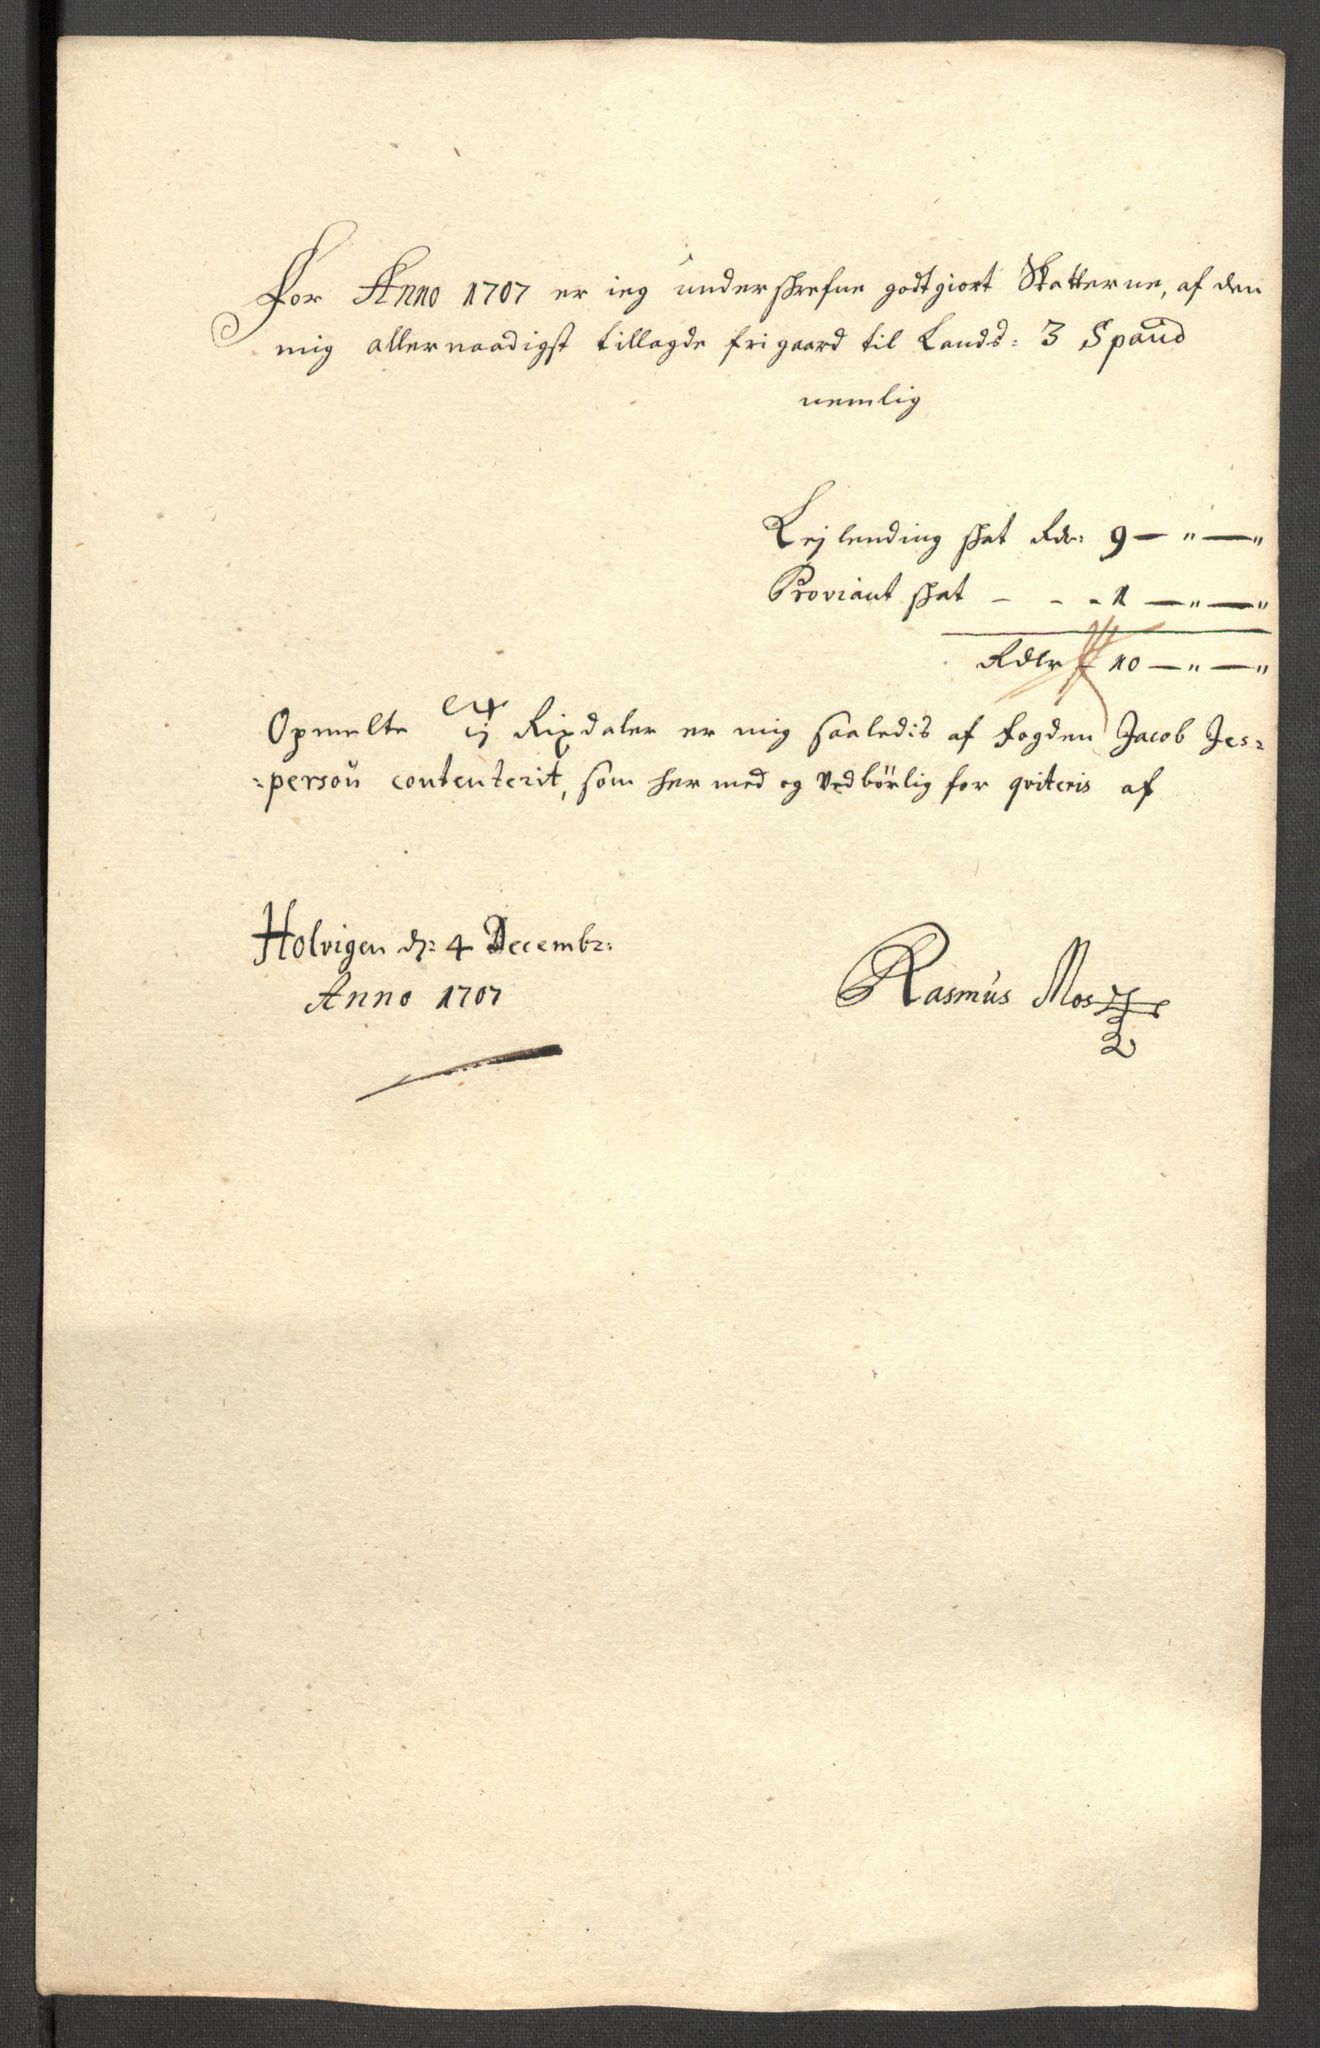 For Anno 1707 er ieg underskrefne godtgiort Skatterne, af den
mig allernaadigst tillagde frigaard til Lands: 3 Spand
nemlig
Lejlending skat Rdr: 9 — " — "
Proviant skat - - - 1 — " — "
Rdlr 10 — " — "
Opmelte Rixdaler er mig saaledis af fogden Jacob Jes=
=persøn contenterit, som her med og vedbørlig for qviteris af
Holvigen d: 4 Decembr:
Anno 1707
Rasmus